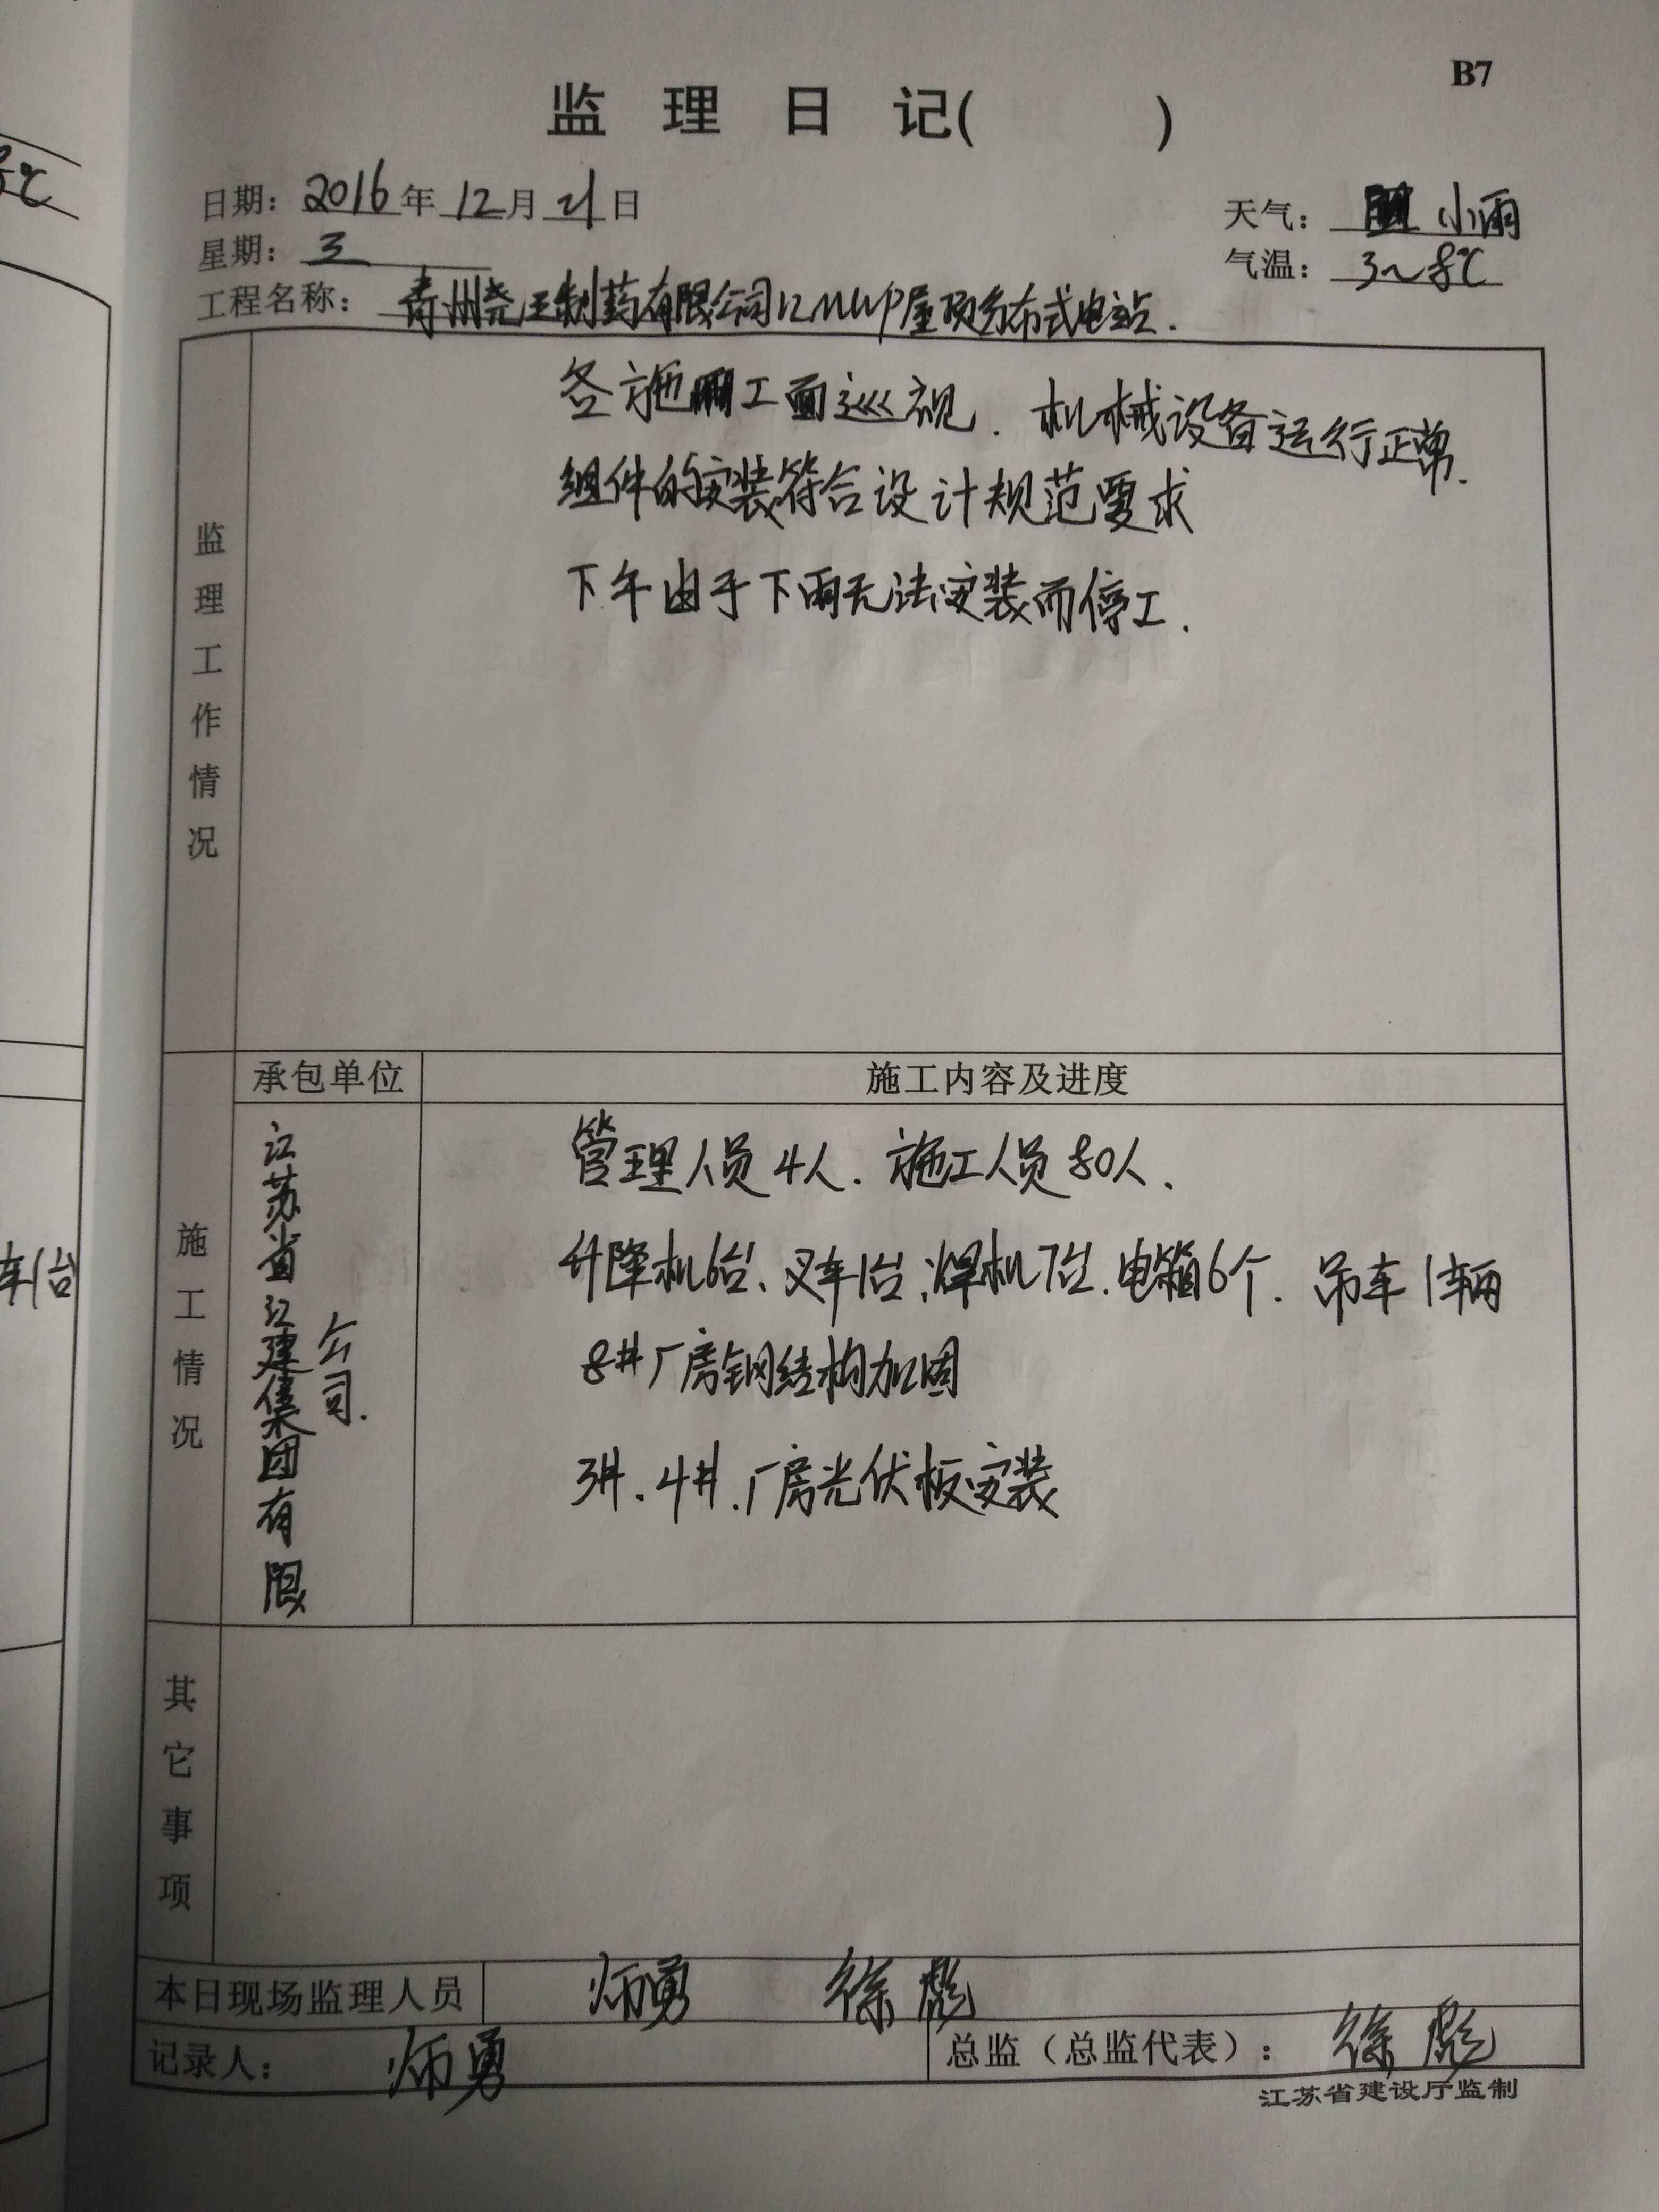 B7
监 理 日 记( )
日期: 2016 年 12 月 21 日
天气: 小雨
星期: 三
气温: 3~8℃
工程名称: 青州尧王制药有限公司12MWP屋顶分布式电站.
监理工作情况
各施工面巡视. 机械设备运行正常.
组件的安装符合设计规范要求
下午由于下雨无法安装而停工.
施工情况
承包单位
施工内容及进度
江苏省江建集团有限公司.
管理人员4人. 施工人员80人.
升降机6台、叉车1台、焊机7台.电箱6个. 吊车1辆
8#厂房钢结构加固
3#.4#.厂房光伏板安装
其它事项
本日现场监理人员 勇 徐彪
记录人: 勇
总监（总监代表）: 徐彪
江苏省建设厅监制
℃
车1台